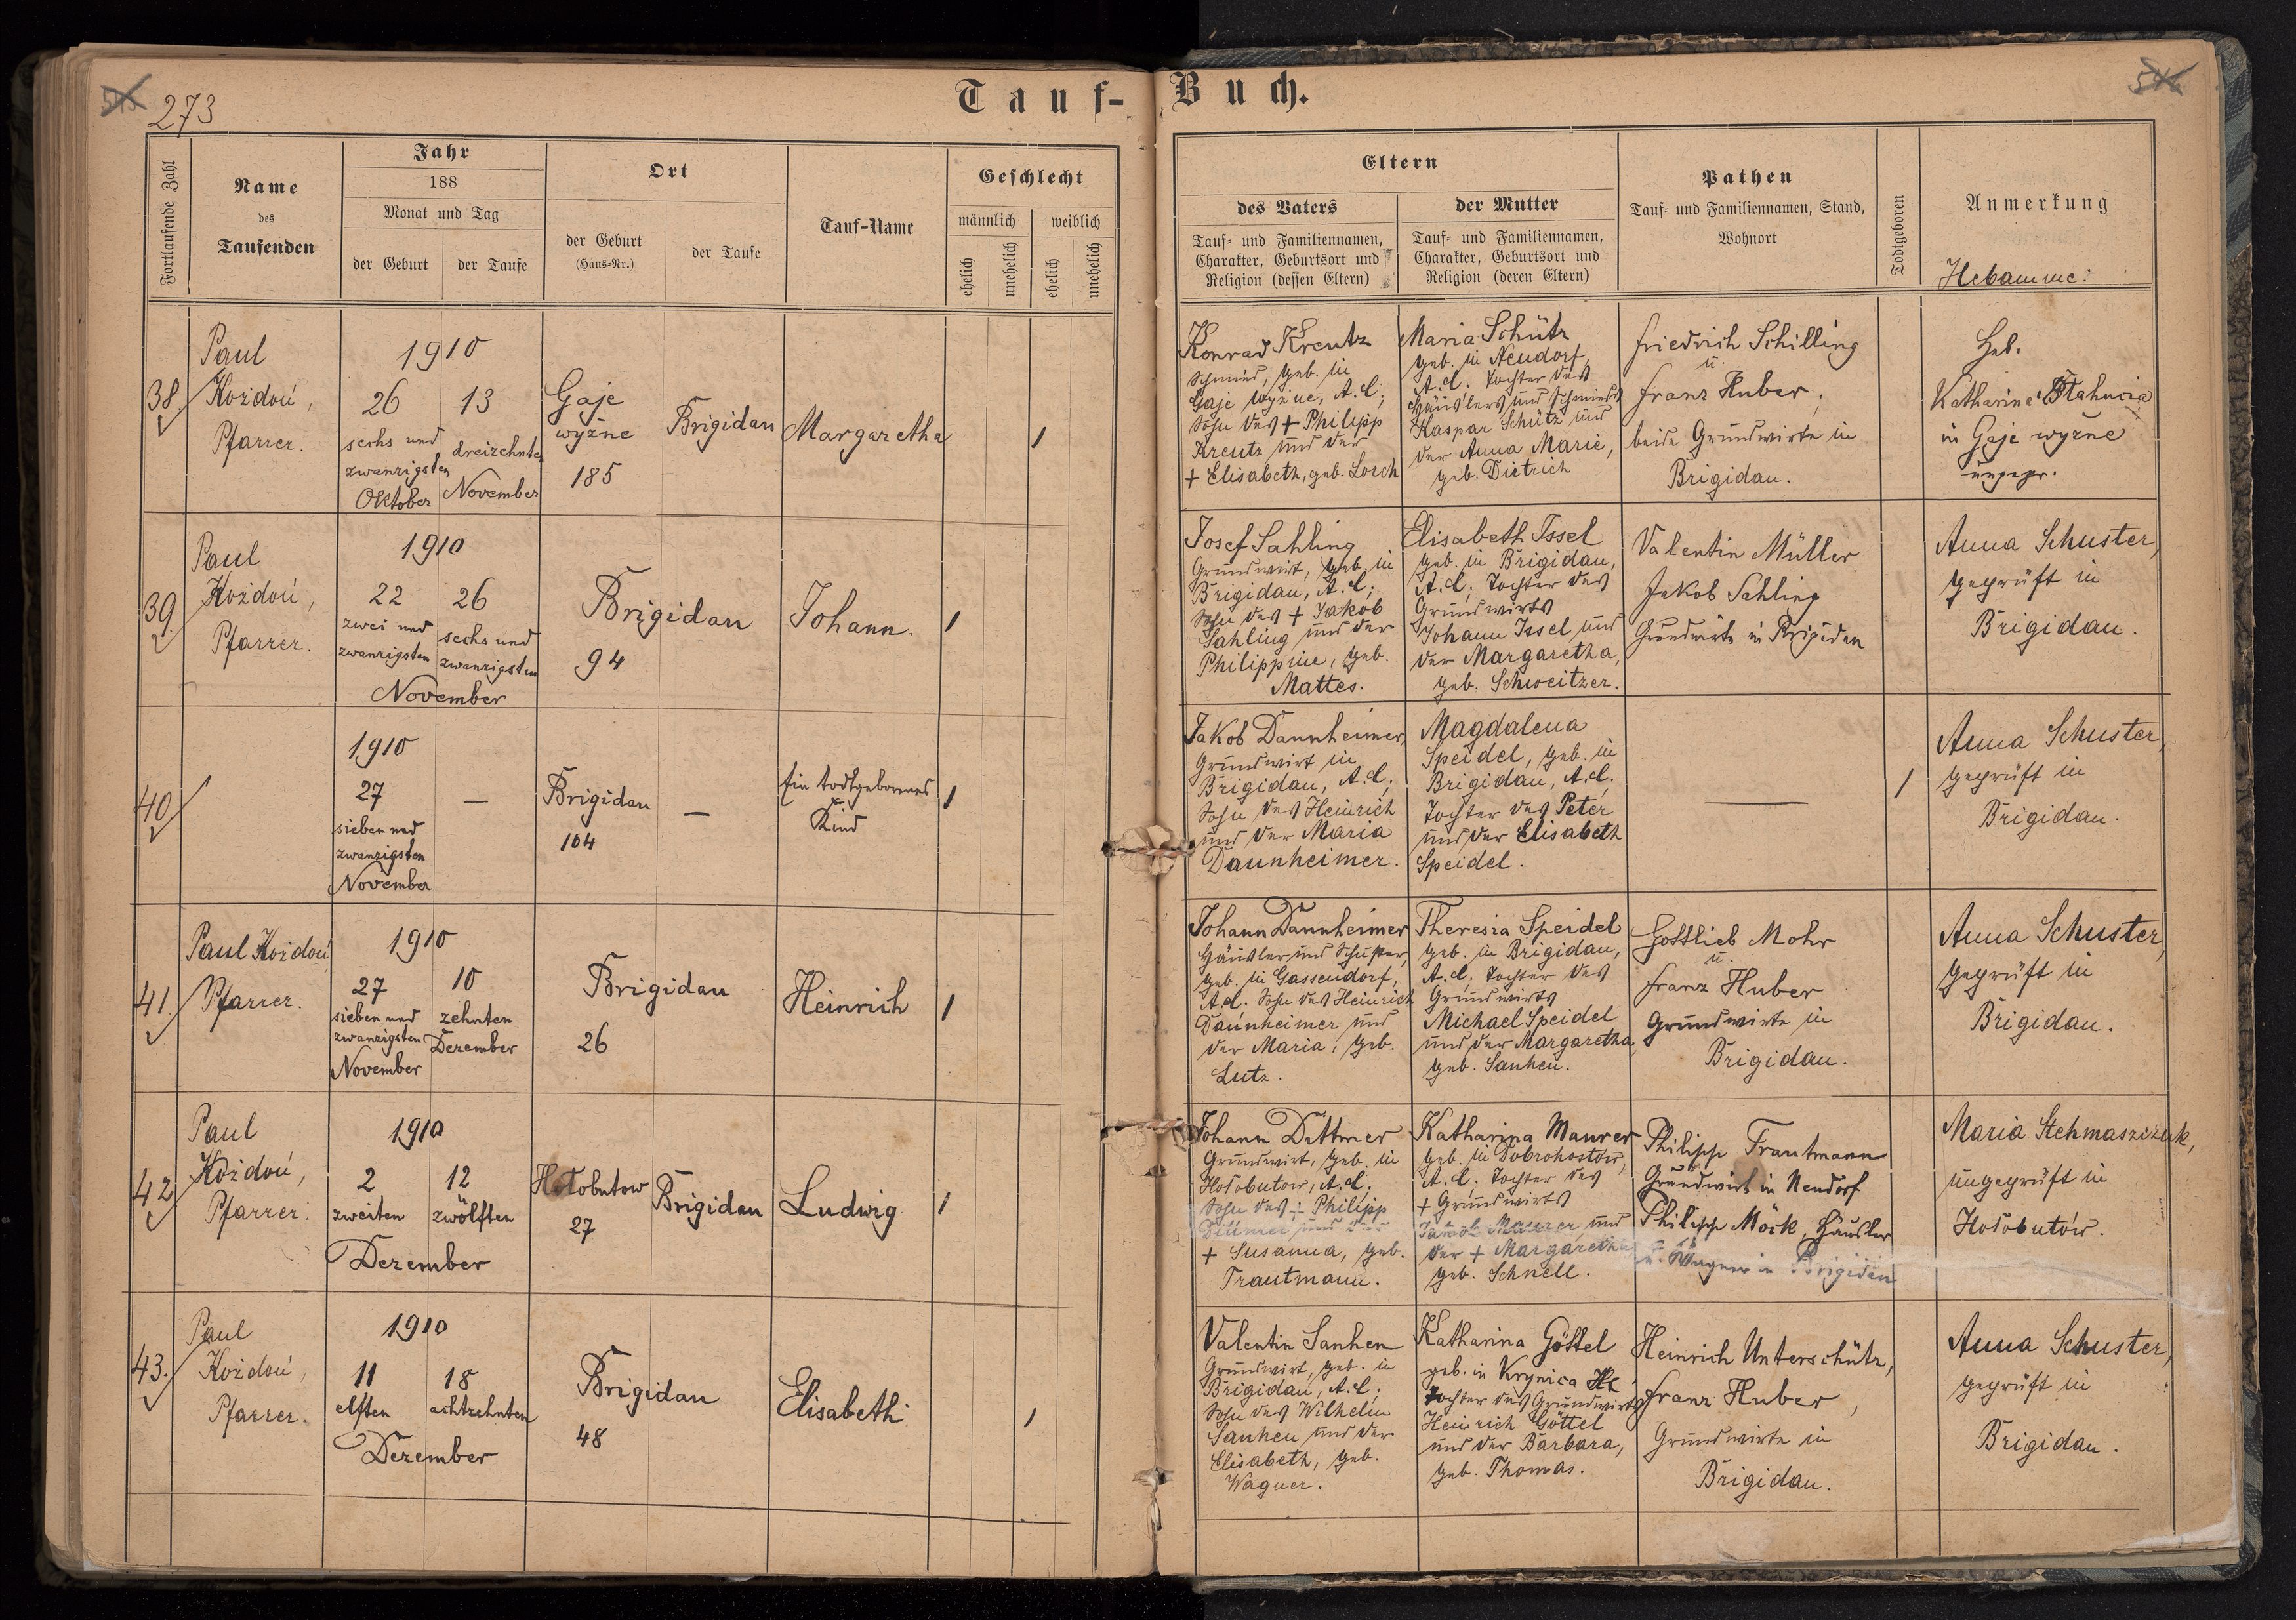 273
Tauf-Buch.
Fortlaufende Zahl
Name
des
Taufenden
Jahr
188
Monat und Tag
der Geburt
der Taufe
Ort
der Geburt
(Haus-Nr.)
der Taufe
Tauf-Name
Geschlecht
männlich
weiblich
ehelich
unehelich
ehelich
unehelich
Eltern
des Vaters
Tauf- und Familiennamen,
Charakter, Geburtsort und
Religion (dessen Eltern)
der Mutter
Tauf- und Familiennamen,
Charakter, Geburtsort und
Religion (deren Eltern)
Pathen
Tauf- und Familiennamen, Stand,
Wohnort
Todtgeboren
Anmerkung
Hebamme:
38.
Paul
Kożdoń,
Pfarrer.
1910
26
sechs und
zwanzigsten
Oktober
13
dreizehnten
November
Gaje
wyżne
185
Brigidau
Margaretha
1
Konrad Kreutz
Schmied, geb. in
Gaje wyżne, A.C.;
Sohn des + Philipp
Kreutz und der
+ Elisabeth, geb. Lorch
Maria Schütz
geb. in Neudorf,
A.C. Tochter des
Häuslers und Schmieds
Kaspar Schütz und
der Anna Marie,
geb. Dietrich
Friedrich Schilling
u.
Franz Huber,
beide Grundwirte in
Brigidau.
Heb.
Katharina
in Gaje wyżne
ungepr.
39.
Paul
Kożdoń,
Pfarrer.
1910
22
zwei und
zwanzigsten
26
sechs und
zwanzigsten
November
Brigidau
94
Johann.
1
Josef Sahling
Grundwirt, geb. in
Brigidau, A.C.;
Sohn des + Jakob
Sahling und der
Philippine, geb.
Mattes.
Elisabeth Issel
geb. in Brigidau,
A.C.; Tochter des
Grundwirts
Johann Issel und
der Margaretha,
geb. Schweitzer.
Valentin Müller
Jakob Sahling
Grundwirte in Brigidau
Anna Schuster,
geprüft in
Brigidau.
40.
1910
27
sieben und
zwanzigsten
November
—
Brigidau
104
—
Ein todtgeborenes
Kind
1
Jakob Dannheimer,
Grundwirt in
Brigidau, A.C.;
Sohn des Heinrich
und der Maria
Daunheimer.
Magdalena
Speidel, geb. in
Brigidau, A.C.;
Tochter des Peter
und der Elisabeth
Speidel.
—
1
Anna Schuster,
geprüft in
Brigidau.
41.
Paul Kożdoń
Pfarrer.
1910
27
sieben und
zwanzigsten
November
10
zehnten
Dezember
Brigidau
26
Heinrich
1
Johann Dannheimer
Häusler und Schuster,
geb. in Gassendorf,
A.C. Sohn des Heinrich
Daunheimer und
der Maria, geb.
Lutz.
Theresia Speidel
geb. in Brigidau,
A.C. Tochter des
Grundwirts
Michael Speidel
und der Margaretha,
geb. Sanhen.
Gottlieb Mohr
u.
Franz Huber
Grundwirte in
Brigidau.
Anna Schuster,
geprüft in
Brigidau.
42.
Paul
Kożdoń,
Pfarrer.
1910
2
zweiten
12
zwölften
Dezember
Hołobutow
27
Brigidau
Ludwig
1
Johann Dittmer
Grundwirt, geb. in
Hołobutow, A.C.;
Sohn des + Philipp
Dittmer und der
+ Susanna, geb.
Trautmann.
Katharina Maurer
geb. in Dobrohostow,
A.C. Tochter des
+ Grundwirts
Jakob Maurer und
der + Margaretha
geb. Schnell.
Philipp Trautmann
Grundwirt in Neudorf
Philipp Möck, Häusler
u. Wagner in Brigidau
Maria Stehmaszczuk,
ungeprüft in
Hołobutów.
43.
Paul
Kożdoń,
Pfarrer.
1910
11
elften
18
achtzehnten
Dezember
Brigidau
48
Elisabeth
1
Valentin Sanhen
Grundwirt, geb. in
Brigidau, A.C.;
Sohn des Wilhelm
Sanhen und der
Elisabeth, geb.
Wagner.
Katharina Göttel
geb. in Krynica
Tochter des Grundwirts
Heinrich Göttel
und der Barbara,
geb. Thomas.
Heinrich Unterschütz,
Franz Huber,
Grundwirte in
Brigidau.
Anna Schuster,
geprüft in
Brigidau.